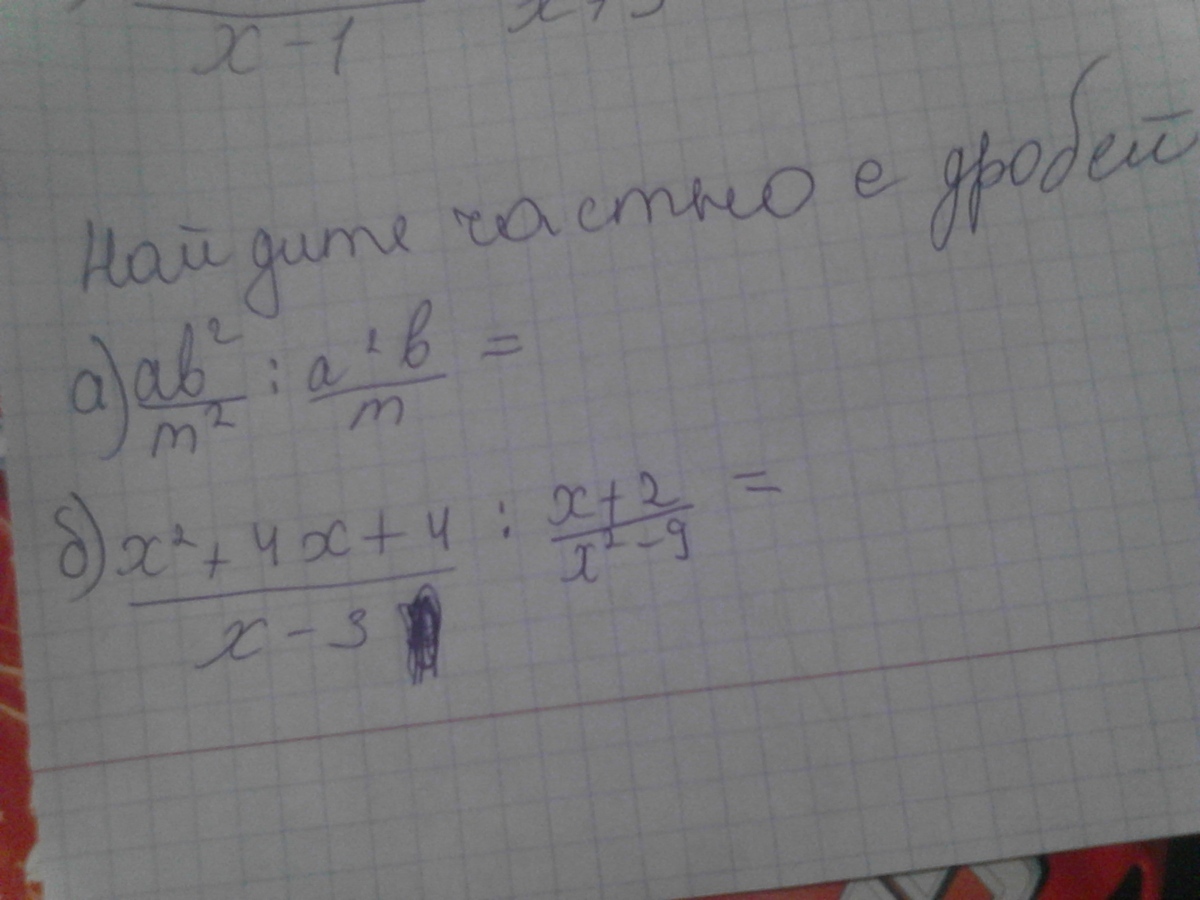 x - 1
Найдите частно е дробей
а) ab² / m² : a²b / m =
б) x² + 4x + 4 / x - 3 : x + 2 / x² - 9 =